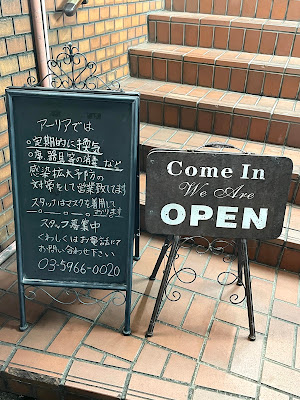 アーリアでは
○定期的に換気
○席、器具等の消毒 など
感染拡大予防の
対策をして営業致してます!
スタッフはマスクを着用して
おります
スタッフ募集中
くわしくはお電話にて
お問い合わせ下さい
03-5966-0020
Come In
We Are
OPEN